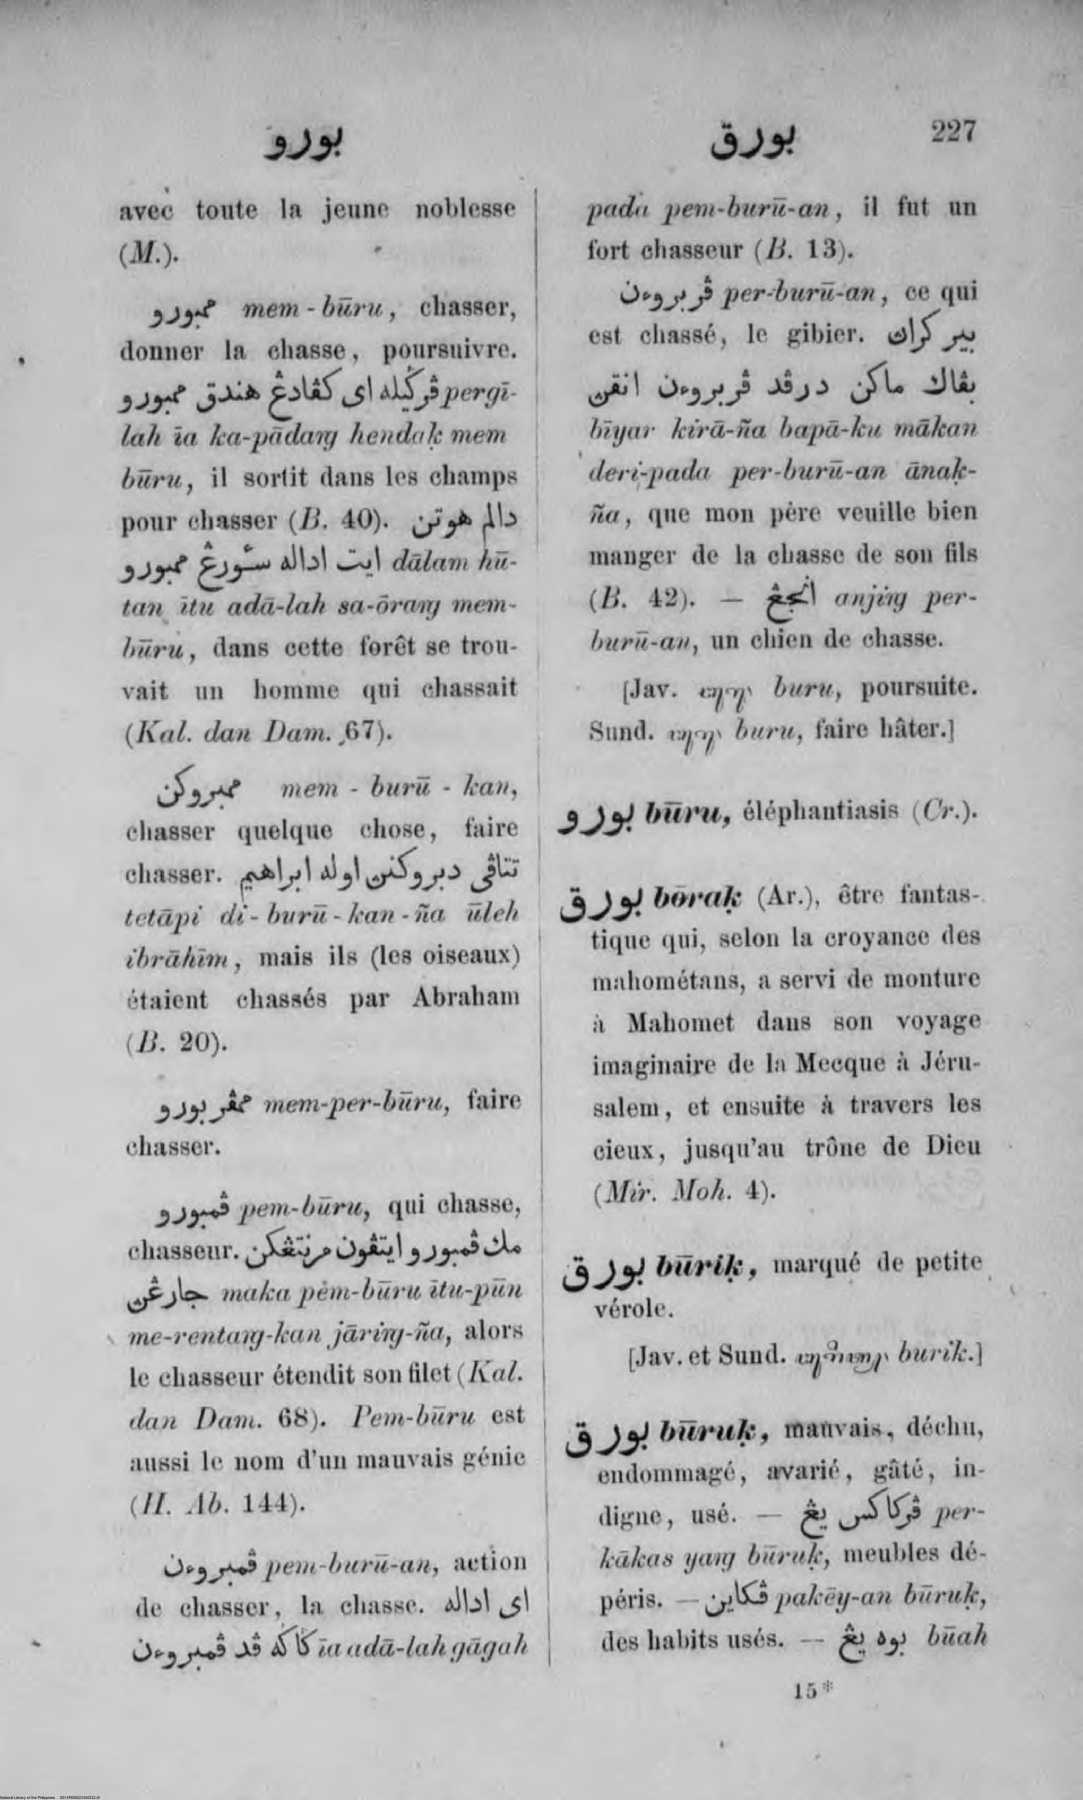 بورو
بورق
227
avec toute la jeune noblesse
(M.).
ممبورو mem-būru, chasser,
donner la chasse, poursuivre.
ڤرݢيله اى كڤادڠ هندق ممبورو pergī-
lah īa ka-pādaŋg hendaḳ mem
būru, il sortit dans les champs
pour chasser (B. 40). دالم هوتن
ايت اداله سٔورڠ ممبورو dālam hū-
tan ītu adā-lah sa-ōraŋg mem-
būru, dans cette forêt se trou-
vait un homme qui chassait
(Kal. dan Dam. 67).
ممبروكن mem-burū-kan,
chasser quelque chose, faire
chasser. تتاڤى دبروكنن اوله ابراهيم
tetāpi di-burū-kan-ña ūleh
ibrāhīm, mais ils (les oiseaux)
étaient chassés par Abraham
(B. 20).
ممڤربورو mem-per-būru, faire
chasser.
ڤمبورو pem-būru, qui chasse,
chasseur. مك ڤمبورو ايتڤون مرنتڠكن
جارڠن maka pem-būru ītu-pūn
me-rentaŋg-kan jāriŋg-ña, alors
le chasseur étendit son filet (Kal.
dan Dam. 68). Pem-būru est
aussi le nom d'un mauvais génie
(H. Ab. 144).
ڤمبروءن pem-burū-an, action
de chasser, la chasse. اى اداله
ݢاݢه ڤد ڤمبروءن īa adā-lah gāgah
pada pem-burū-an, il fut un
fort chasseur (B. 13).
ڤربروءن per-burū-an, ce qui
est chassé, le gibier. بير كراڽ
بڤاك ماكن درڤد ڤربروءن انقن
bīyar kirā-ña bapā-ku mākan
deri-pada per-burū-an ānaḳ-
ña, que mon père veuille bien
manger de la chasse de son fils
(B. 42). — انجڠ anjiŋg per-
burū-an, un chien de chasse.
[Jav. buru, poursuite.
Sund. buru, faire hâter.]
بورو būru, éléphantiasis (Cr.).
بورق bōraḳ (Ar.), être fantas-
tique qui, selon la croyance des
mahométans, a servi de monture
à Mahomet dans son voyage
imaginaire de la Mecque à Jéru-
salem, et ensuite à travers les
cieux, jusqu'au trône de Dieu
(Mir. Moh. 4).
بورق būriḳ, marqué de petite
vérole.
[Jav. et Sund. burik.]
بورق būruḳ, mauvais, déchu,
endommagé, avarié, gâté, in-
digne, usé. — ڤركاكس يڠ per-
kākas yaŋg būruḳ, meubles dé-
péris. — ڤكاين pakēy-an būruḳ,
des habits usés. — بوه يڠ būah
15*